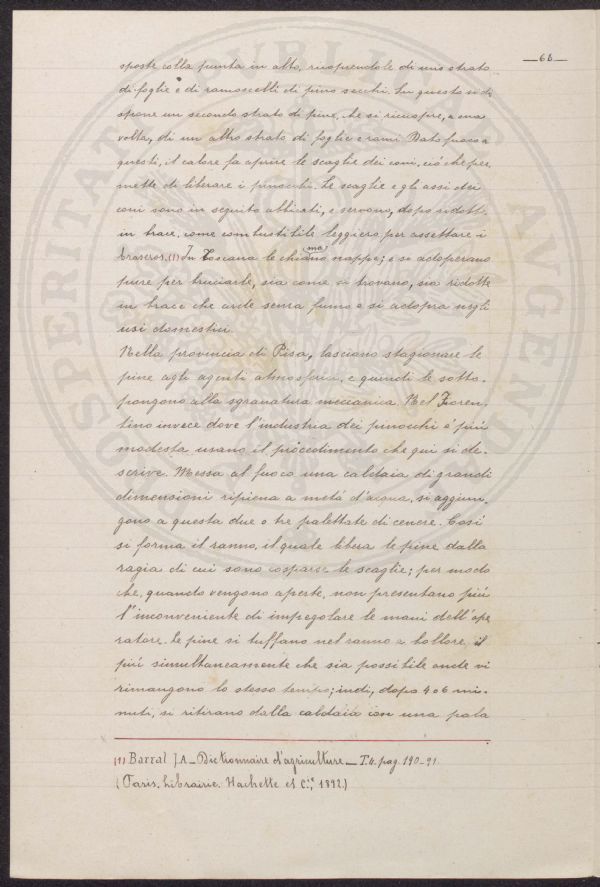 —66—
sposte colla punta in alto, ricoprendole di uno strato
di foglie e di ramoscelli di pino secchi. Su questo si di-
spone un secondo strato di pine, che si ricuopre, a sua
volta, di un altro strato di foglie e rami. Dato fuoco a
questi, il calore fa aprire le scaglie dei coni, ciò che per-
mette di liberare i pinocchi. Le scaglie e gli assi dei
coni sono in seguito abbicati, e servono, dopo ridotti
in brace, come combustibile leggiero per assettare i
braseros.(1) In Toscana le chiamano nappe; e se adoperano
pure per bruciarle, sia come si trovano, sia ridotte
in brace che arde senza fumo e si adopra negli
usi domestici.
Nella provincia di Pisa, lasciano stagionare le
pine agli agenti atmosferici, e quindi le sotto-
pongono alla sgranatura meccanica. Nel Fioren-
tino invece dove l'industria dei pinocchi è più
modesta usano il procedimento che qui si de-
scrive. Messa al fuoco una caldaia di grandi
dimensioni ripiena a metà d'acqua, si aggiun-
gono a questa due o tre palettate di cenere. Così
si forma il ranno, il quale libera le pine dalla
ragia di cui sono cosparse le scaglie; per modo
che, quando vengono aperte, non presentano più
l'inconveniente di impegolare le mani dell'ope-
ratore. Le pine si tuffano nel ranno a bollore, il
più simultaneamente che sia possibile onde vi
rimangono lo stesso tempo; indi, dopo 4 o 6 mi-
nuti, si ritirano dalla caldaia con una pala
(1) Barral J.A. _ Dictionnaire d'agriculture _ T.4. pag. 190-91.
(Paris. Librairie. Hachette et C.ie, 1892.)
PROSPERITATI PUBLICAE AUGENDAE